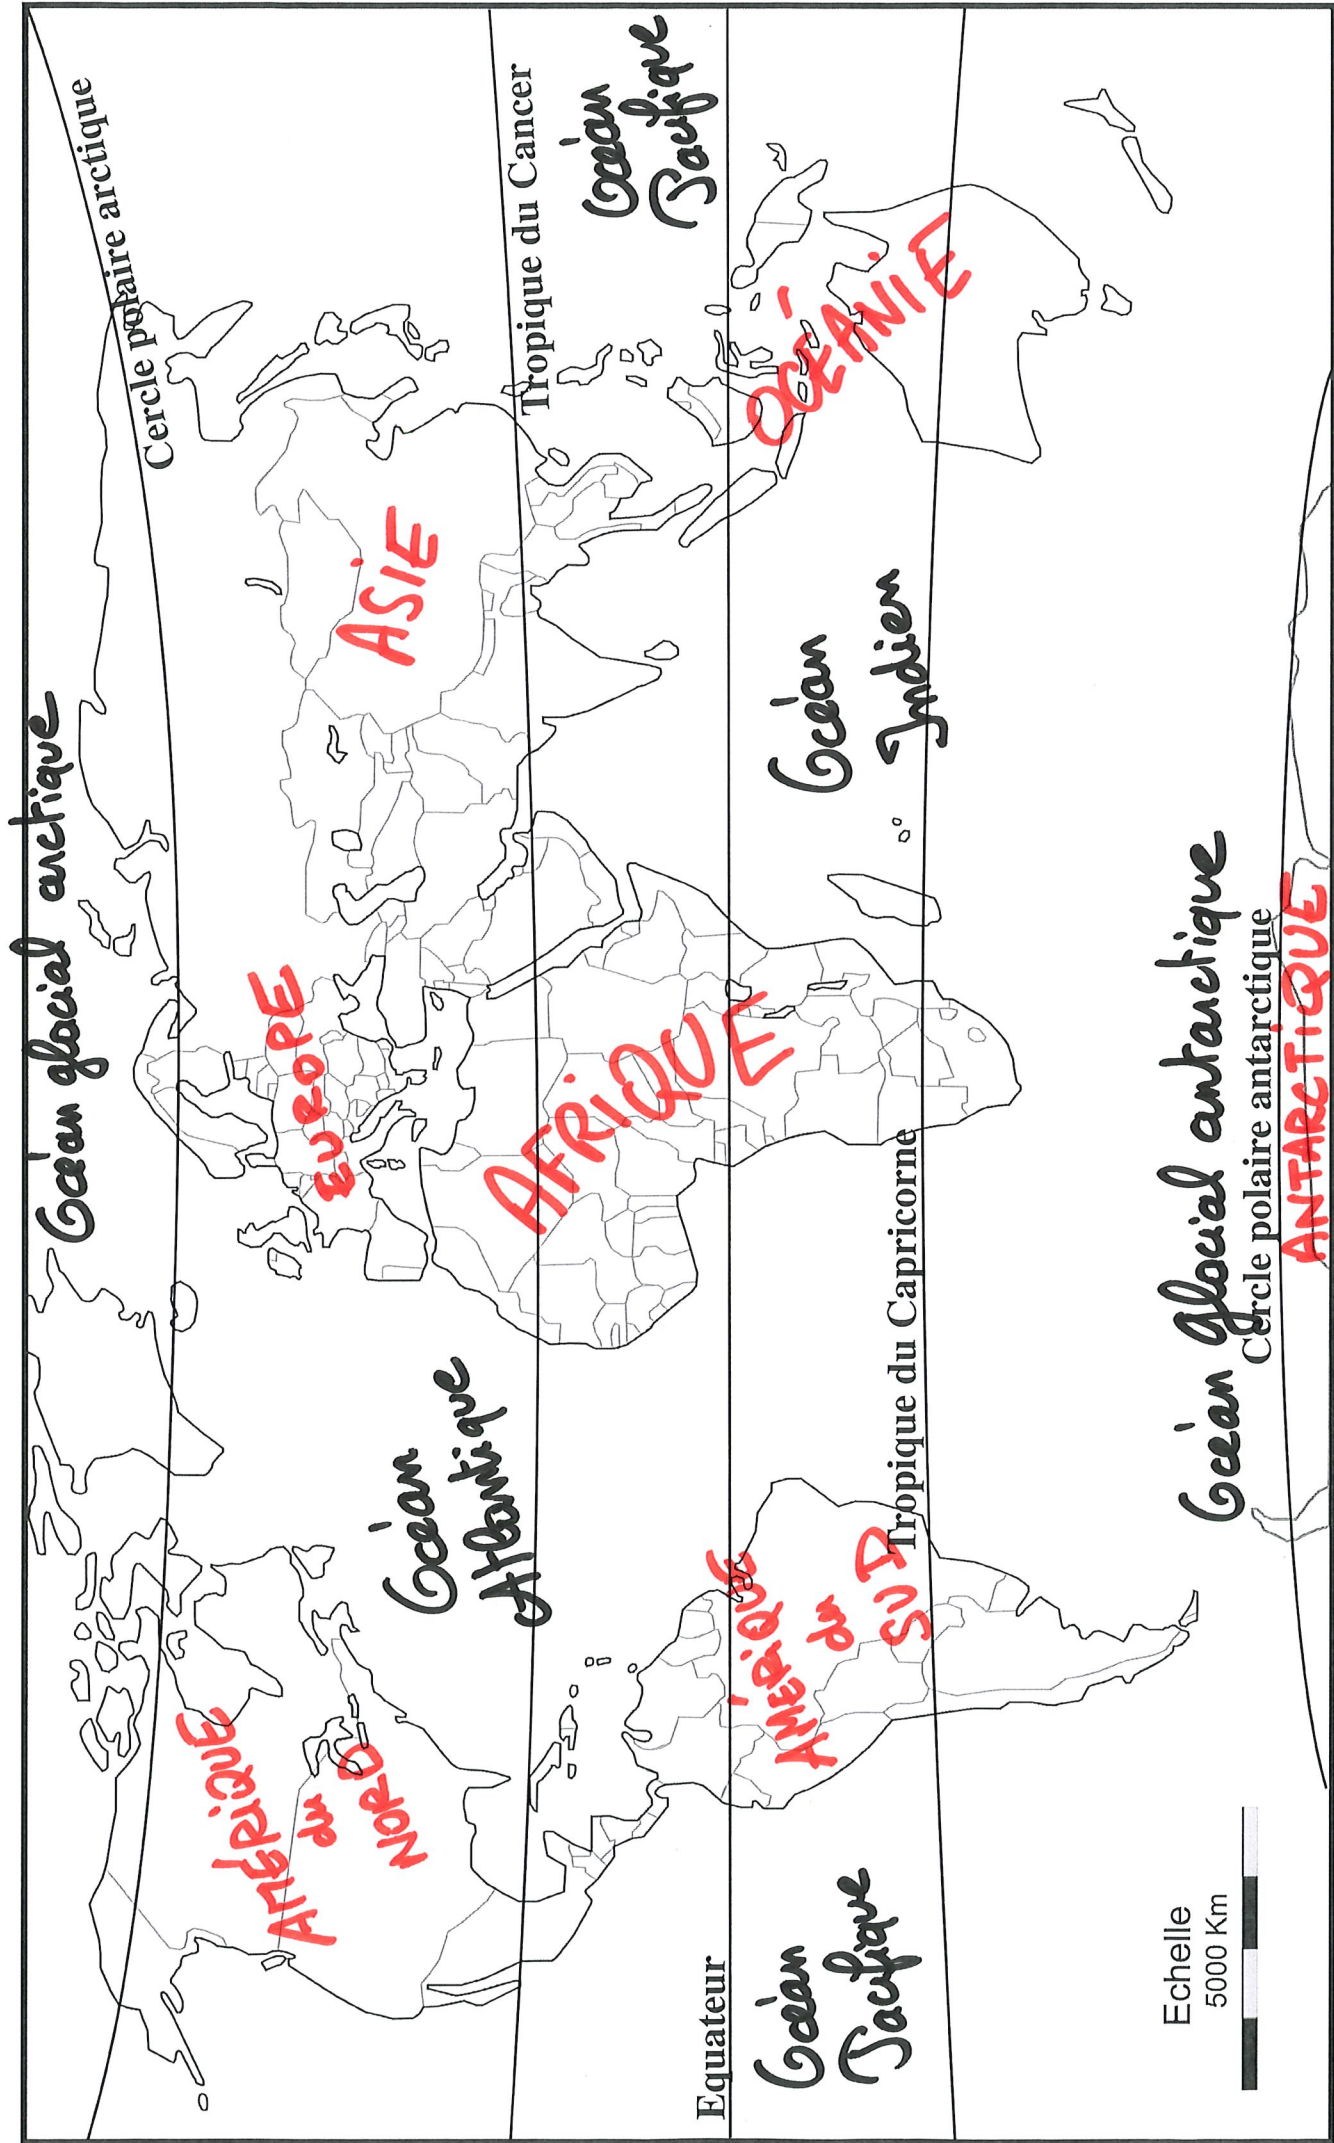 Océan glacial arctique
Cercle polaire arctique
AMÉRIQUE
du
NORD
EUROPE
ASIE
Océan
Atlantique
Tropique du Cancer
Océan
Pacifique
AFRIQUE
Equateur
Océan
Pacifique
AMÉRIQUE
du
SUD
Océan
Indien
OCÉANIE
Tropique du Capricorne
Océan glacial antarctique
Cercle polaire antarctique
ANTARCTIQUE
Echelle
5000 Km